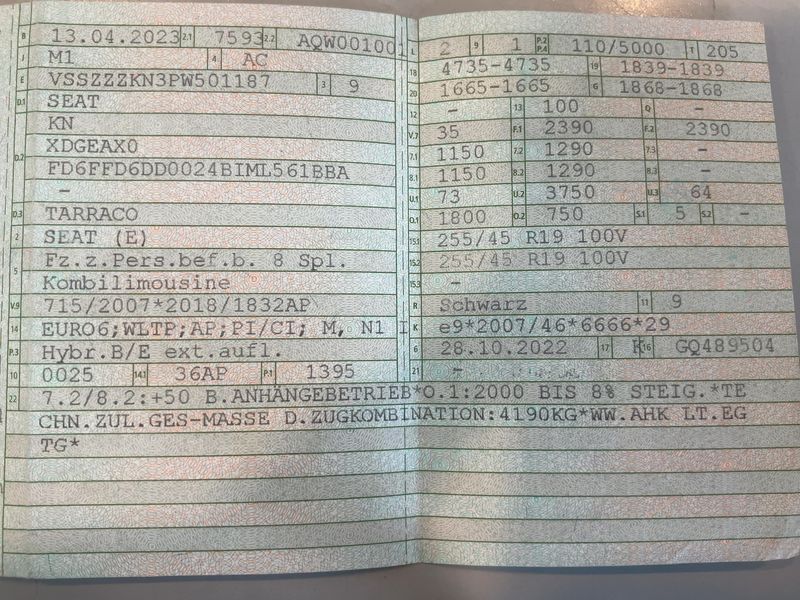 B 13.04.2023 2.1 7593 2.2 AQW001001
J M1 4 AC
E VSSZZZKN3PW501187 3 9
D.1 SEAT
KN
D.2 XDGEAX0
FD6FFD6DD0024BIML561BBA
-
D.3 TARRACO
2 SEAT (E)
5 Fz.z.Pers.bef.b. 8 Spl.
Kombilimousine
V.9 715/2007*2018/1832AP
14 EURO6;WLTP;AP;PI/CI; M, N1 I
P.3 Hybr.B/E ext.aufl.
10 0025 14.1 36AP P.1 1395
L 2 9 1 P.2 P.4 110/5000 T 205
18 4735-4735 19 1839-1839
20 1665-1665 G 1868-1868
12 - 13 100 Q -
V.7 35 F.1 2390 F.2 2390
7.1 1150 7.2 1290 7.3 -
8.1 1150 8.2 1290 8.3 -
U.1 73 U.2 3750 U.3 64
O.1 1800 O.2 750 S.1 5 S.2 -
15.1 255/45 R19 100V
15.2 255/45 R19 100V
15.3 -
R Schwarz 11 9
K e9*2007/46*6666*29
6 28.10.2022 17 K 16 GQ489504
21 -
22 7.2/8.2:+50 B.ANHÄNGEBETRIEB*O.1:2000 BIS 8% STEIG.*TE
CHN.ZUL.GES-MASSE D.ZUGKOMBINATION:4190KG*WW.AHK LT.EG
TG*